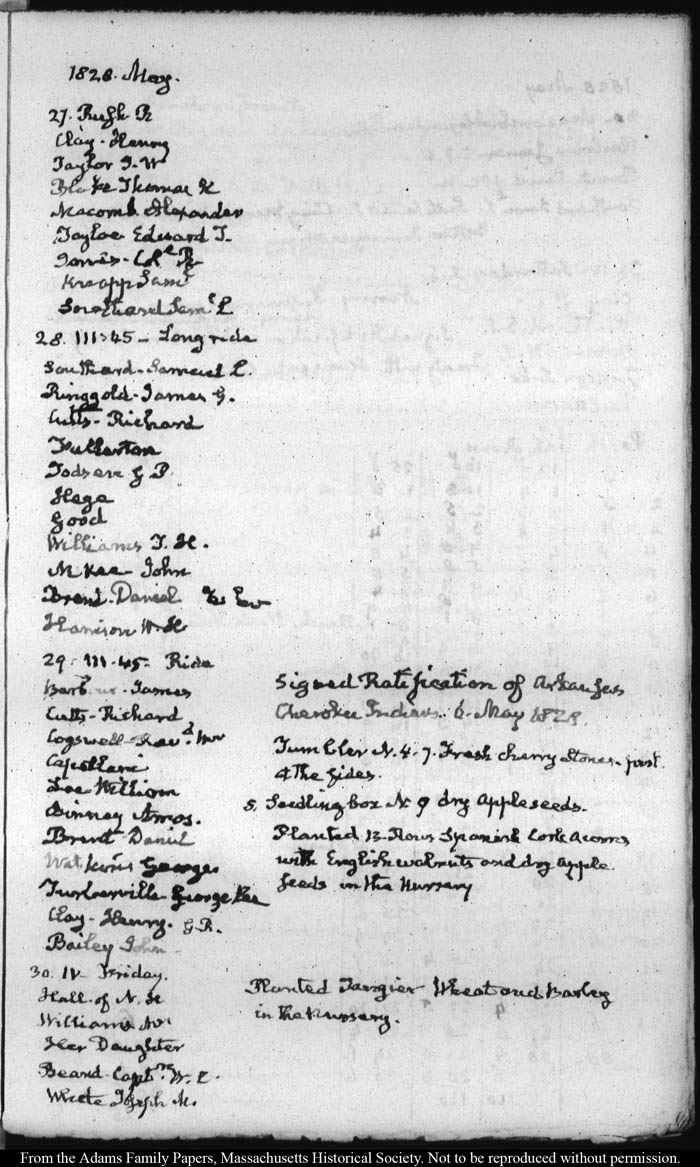 1828. May.
27. Rush R
Clay - Henry
Taylor J. W
Blake Thomas H
Macomb Alexander
Tayloe Edward T.
Jones - Col. R
Knapp Sam.l
Southard Sam.l L
28. III:45 - Long ride
Southard - Samuel L.
Ringgold - James G.
Cutts - Richard
Fullerton
Todsen G P.
Hege
Good
Williams T. H.
McKee John
Brent - Daniel
Harrison W. H
29. III-45. Ride
Barbour - James
Cutts - Richard
Cogswell - Rev.d Mr
Capellani
Lee William
Binney Amos.
Brent - Daniel
Watkins George
Turberville George Lee
Clay - Henry. G R.
Bailey John
Signed Ratification of Arkansas
Cherokee Indians. 6. May 1828.
Tumbler N. 4. 7. Fresh Cherry Stones - just
4 the sides.
5. Seedling box N 9 dry Apple seeds.
Planted 13 Rows Spanish Cork Acorns
with English walnuts and dry apple
seeds in the Nursery
30. IV Friday.
Hall of N. H
Williams Mr
Her Daughter
Beard Capt.n W. C.
White Joseph M.
Planted Tangier Wheat and Barley
in the Nursery.
From the Adams Family Papers, Massachusetts Historical Society. Not to be reproduced without permission.